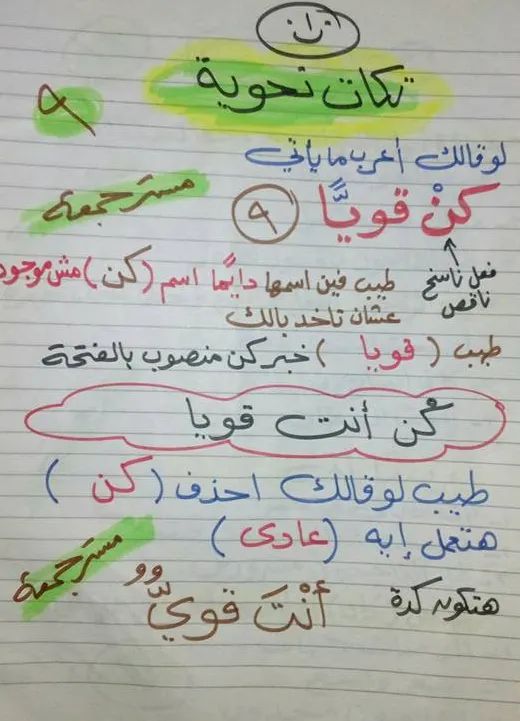 تكات نحوية
٩
لو قالك أعرب ما يأتي
كنْ قويًّا ٩
مستر جمعة
فعل ناسخ ناقص
طيب فين اسمها دايمًا اسم (كن) مش موجود
عشان تاخد بالك
طيب (قويا) خبر كن منصوب بالفتحة
كن أنت قويا
طيب لو قالك احذف (كن)
هتعمل إيه (عادى)
هتكون كدة أنْتَ قويٌّ
مستر جمعة